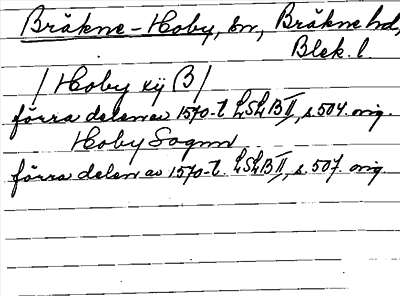 Bräkne-Hoby, sn, Bräkne hd,
Blek. l.
/ Hoby xÿ B /
förra delen av 1570-t. LSLB II, s. 504. orig.
Hoby Sognn
förra delen av 1570-t. LSLB II, s. 507. orig.